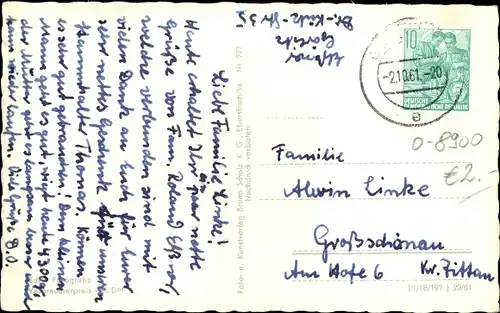 Liebe Familie Linke!
Heute erhaltet Ihr ein paar nette
Grüße von Fam. Roland Elßner,
welche verbunden sind mit
vielen Dank an Euch für Euer
sehr nettes Geschenk für unseren
Stammhalter Thomas. Können
es sehr gut gebrauchen. Dem kleinen
Mann geht es gut, wiegt heute 4300 g,
der Mutter geht es langsam besser und
kann viel laufen. Die Grüße d.O.
Elßner
Görlitz
Dr.-Külz-Str. 35
Foto- u. Kunstverlag Bruno Scholz K G., Ebersbach/Sa. Nr. 777
Nachdruck verboten
Echte Fotografie
Verbraucherpreis DM
10
-2.10.61.-20
e
DEUTSCHE
DEMOKRATISCHE REPUBLIK
O-8900
€2.-
Familie
Alwin Linke
Großschönau
Am Hofe 6 Kr. Zittau
III/18/197 | 20/61